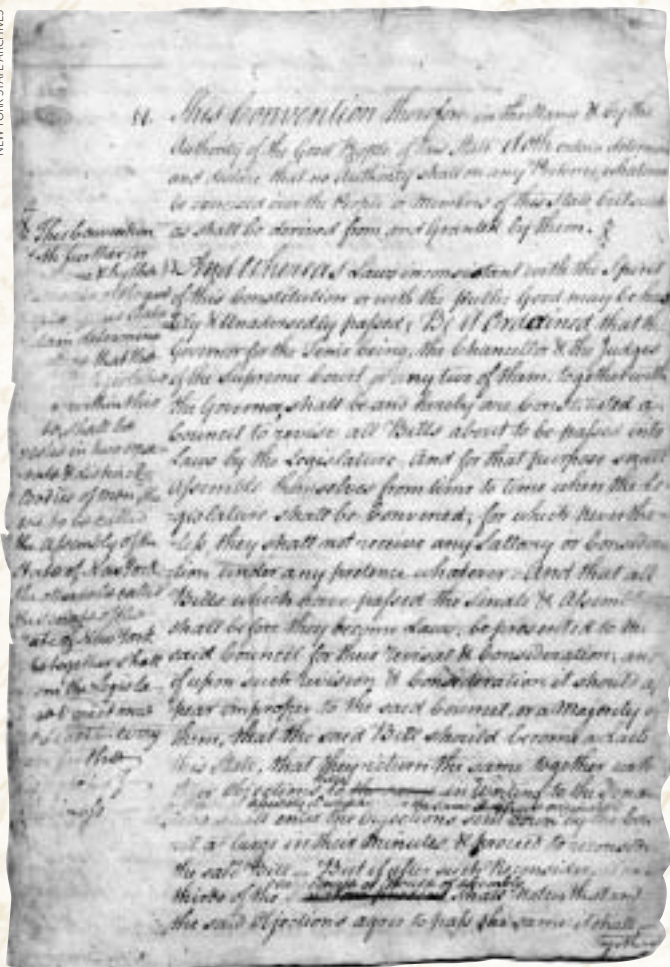 NEW YORK STATE ARCHIVES
This Convention therefore in the Name & by the
Authority of the Good People of this State Doth ordain determine
and declare that no Authority shall on any Pretence whatever
be exercised over the People or Members of this State but such
as shall be derived from and Granted by them.
And Whereas Laws inconsistent with the Spirit
of this Constitution or with the Public Good may be has
tily & Unadvisedly passed; Be it Ordained, that the
Governor for the Time being, the Chancellor & the Judges
of the Supreme Court or any two of them, together with
the Governor, shall be and hereby are Constituted a
Council to revise all Bills about to be passed into
Laws by the Legislature. And for that purpose shall
Assemble themselves from time to time when the Le
gislature shall be Convened; for which neverthe
less they shall not receive any Sallary or Consider
ation under any pretence whatever. And that all
Bills which have passed the Senate & Assem
shall before they become Laws, be presented to the
said Council for their revisal & Consideration; and
if upon such revision & Consideration it should ap
pear improper to the said Council or a Majority of
them, that the said Bill should become a Law
this State, that they return the same together with
their Objections to in Writing to the Senate
shall enter the Objections sent down by the Coun
at large in their Minutes, & proceed to reconsider
the said Bill. But if after such Reconsideration
thirds of the shall notwithstand
the said Objections agree to pass the same it shall
together
This Convention
further in
& by the
determine
that the
within this
to shall be
vested in two sepa
rate & distinct
Bodies of men, the
one to be called
the Assembly of the
State of New York
the called
the Senate of the
State of New York
together shall
the Legisla